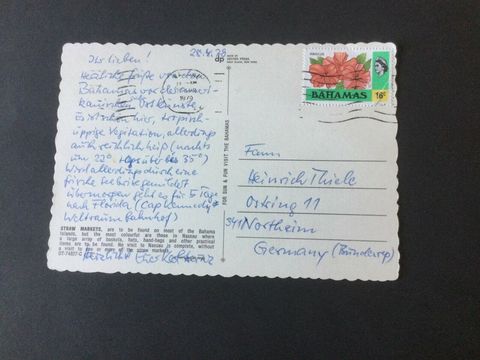 28.4.79
Ihr Lieben!
Herzliche Grüße von den
Bahamas vor der
Küste.
Es ist schön hier, tropisch-
üppige Vegetation, allerdings
auch reichlich heiß (nachts
um 22°, tagsüber bis 35°)
Wird allerdings durch eine
frische Seebrise gemildert
Übermorgen geht es für 5 Tage
nach Florida (Cap Kennedy
Weltraum Bahnhof)
Herzlichst Euer
STRAW MARKETS, are to be found on most of the Bahama
Islands, but the most colourful are those in Nassau where
a large array of baskets, hats, hand-bags and other practical
items are to be found. No visit to Nassau is complete, without
a visit to one or more of the straw markets.
DT-74827-C
dp
FOR SUN & FUN VISIT THE BAHAMAS
HIBISCUS
BAHAMAS 16c
Fam
Heinrich Thiele
Ostring 11
341 Northeim
Germany (Bundesrep)